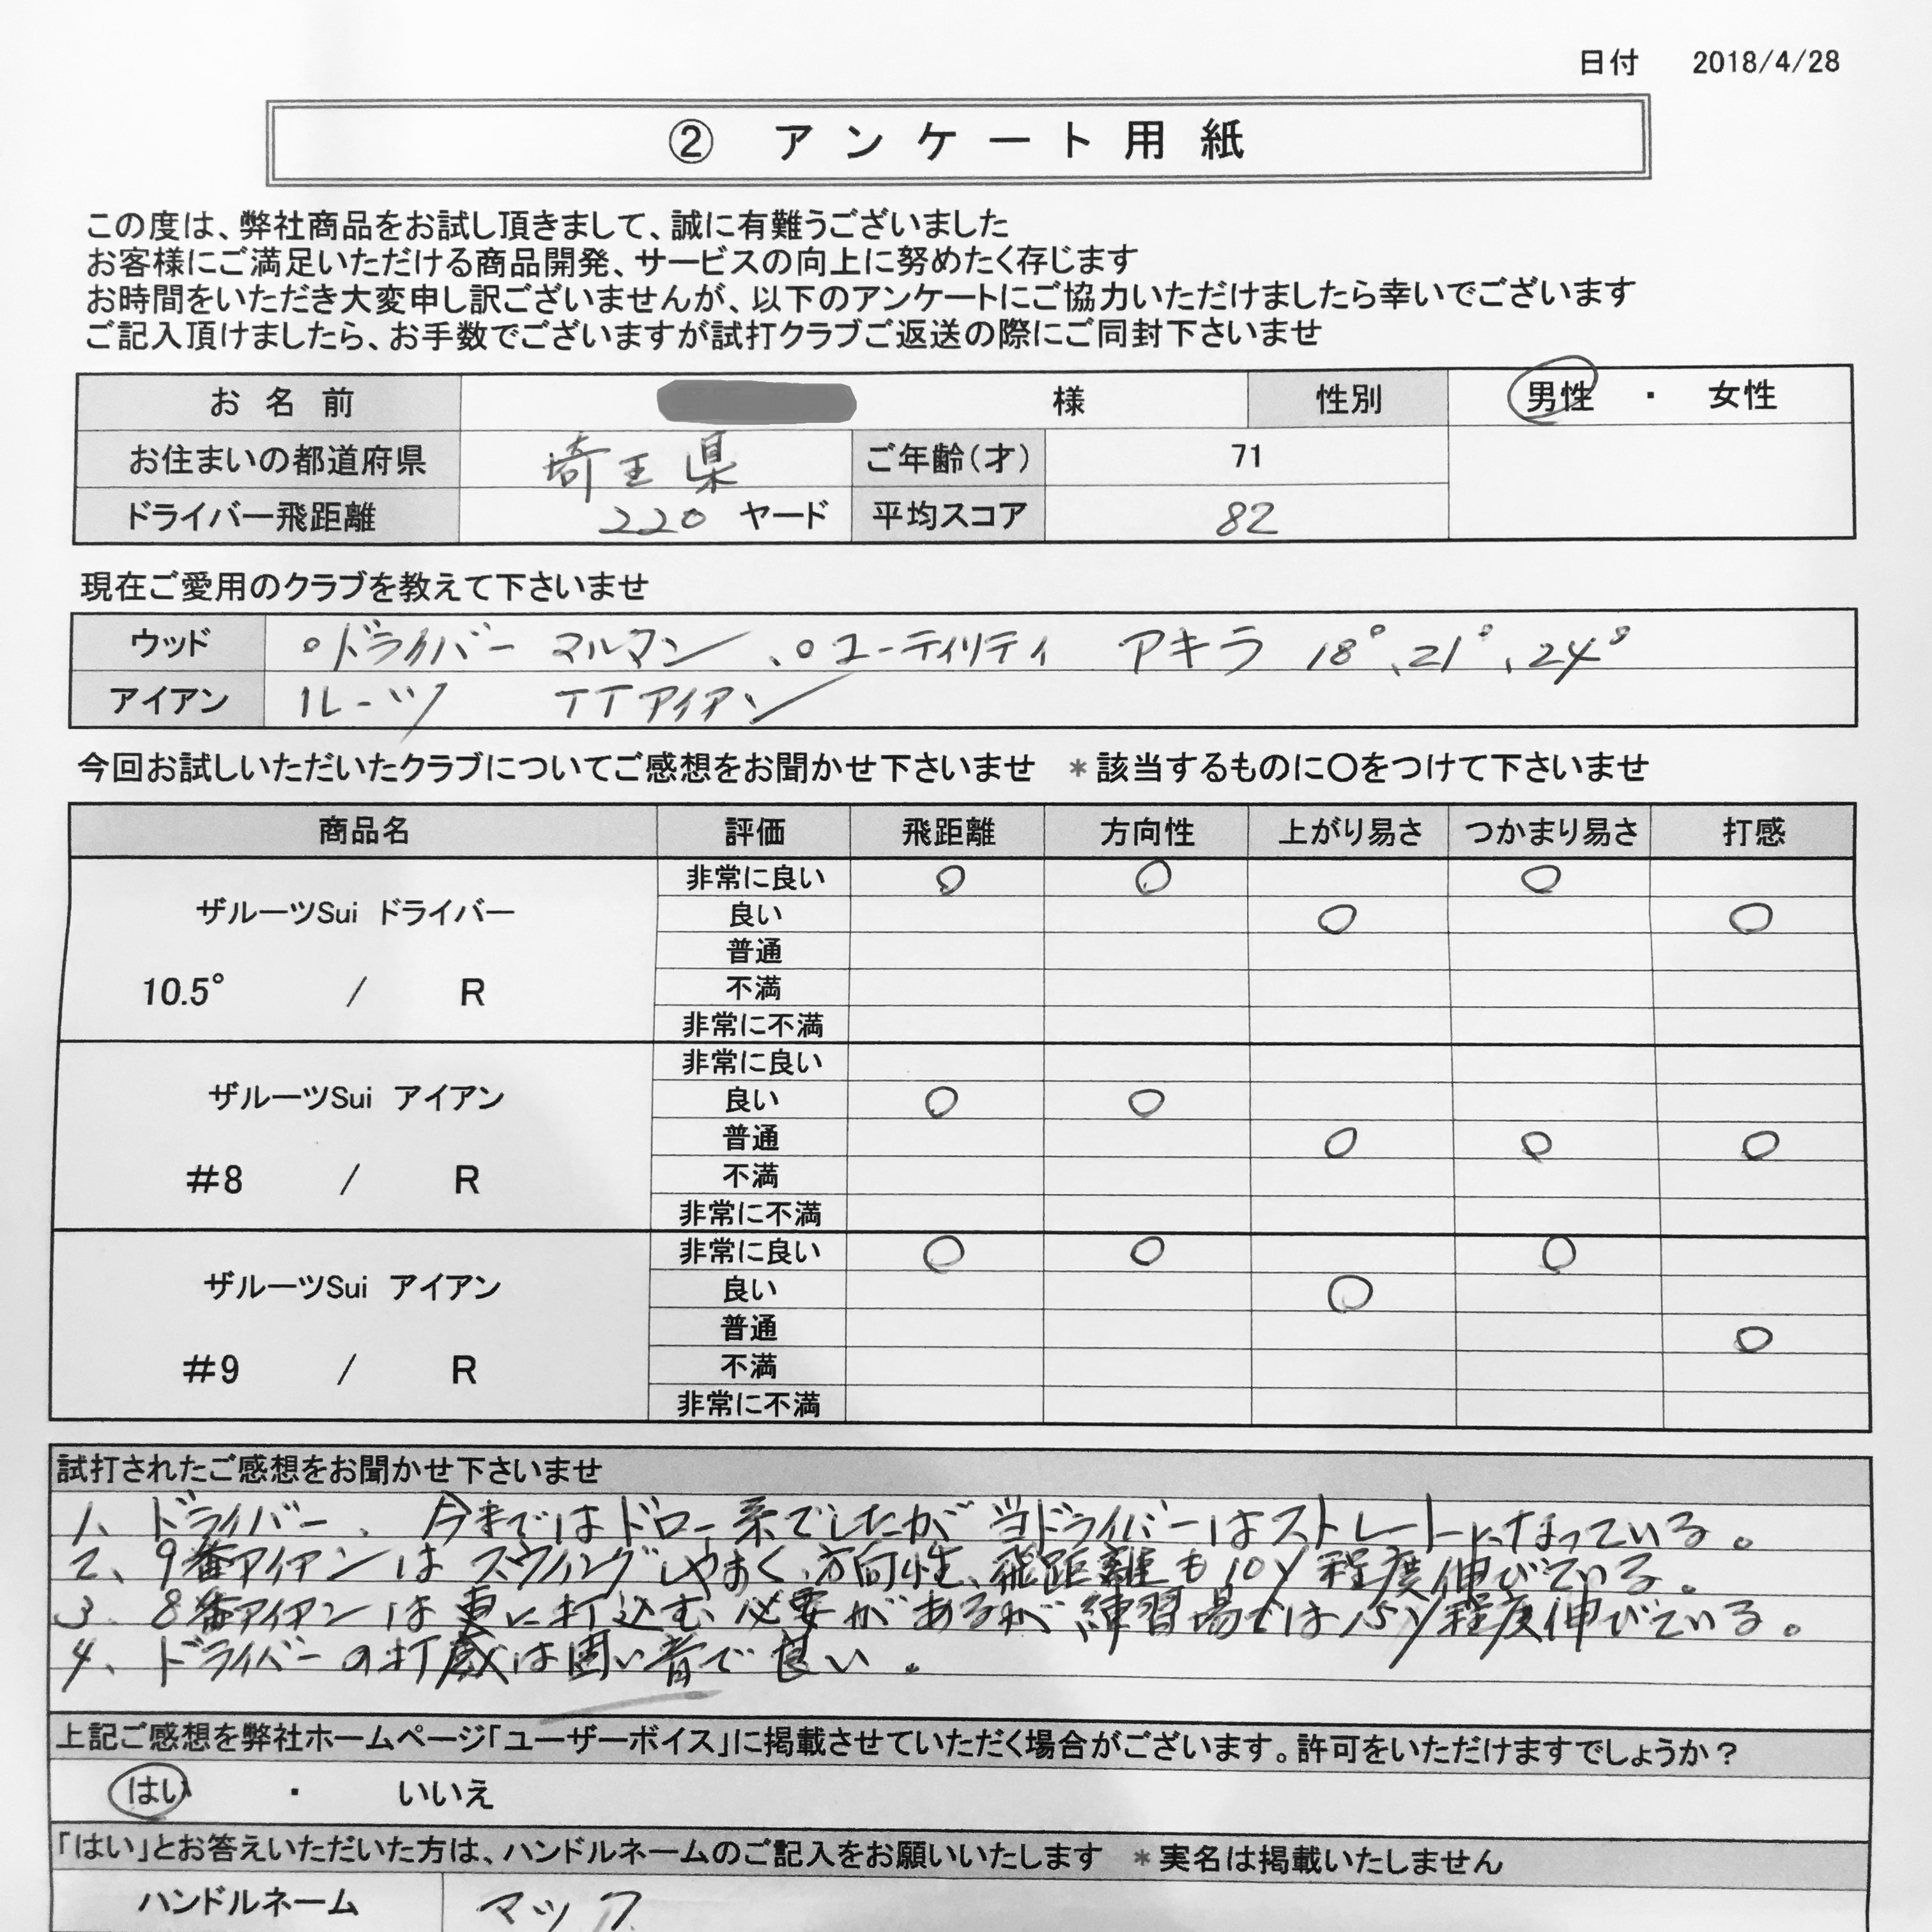 日付 2018/4/28
② アンケート用紙
この度は、弊社商品をお試し頂きまして、誠に有難うございました
お客様にご満足いただける商品開発、サービスの向上に努めたく存じます
お時間をいただき大変申し訳ございませんが、以下のアンケートにご協力いただけましたら幸いでございます
ご記入頂けましたら、お手数でございますが試打クラブご返送の際にご同封下さいませ
お名前 様 性別 男性 ・ 女性
お住まいの都道府県 埼玉県 ご年齢(才) 71
ドライバー飛距離 220 ヤード 平均スコア 82
現在ご愛用のクラブを教えて下さいませ
ウッド ○ドライバー マルマン、○ユーティリティ アキラ 18°、21°、24°
アイアン ルーツ TTアイアン
今回お試しいただいたクラブについてご感想をお聞かせ下さいませ *該当するものに○をつけて下さいませ
商品名 評価 飛距離 方向性 上がり易さ つかまり易さ 打感
ザルーツSui ドライバー
10.5° / R
非常に良い ○ ○ ○
良い ○ ○
普通
不満
非常に不満
ザルーツSui アイアン
#8 / R
非常に良い
良い ○ ○
普通 ○ ○ ○
不満
非常に不満
ザルーツSui アイアン
#9 / R
非常に良い ○ ○ ○
良い ○
普通 ○
不満
非常に不満
試打されたご感想をお聞かせ下さいませ
1、ドライバー、今まではドロー系でしたが当ドライバーはストレートになっている。
2、9番アイアンはスウィングしやすく、方向性、飛距離も10y程度伸びている。
3、8番アイアンは更に打込む必要があるが練習場では15y程度伸びている。
4、ドライバーの打感は固い音で良い。
上記ご感想を弊社ホームページ「ユーザーボイス」に掲載させていただく場合がございます。許可をいただけますでしょうか？
はい ・ いいえ
「はい」とお答えいただいた方は、ハンドルネームのご記入をお願いいたします *実名は掲載いたしません
ハンドルネーム マック